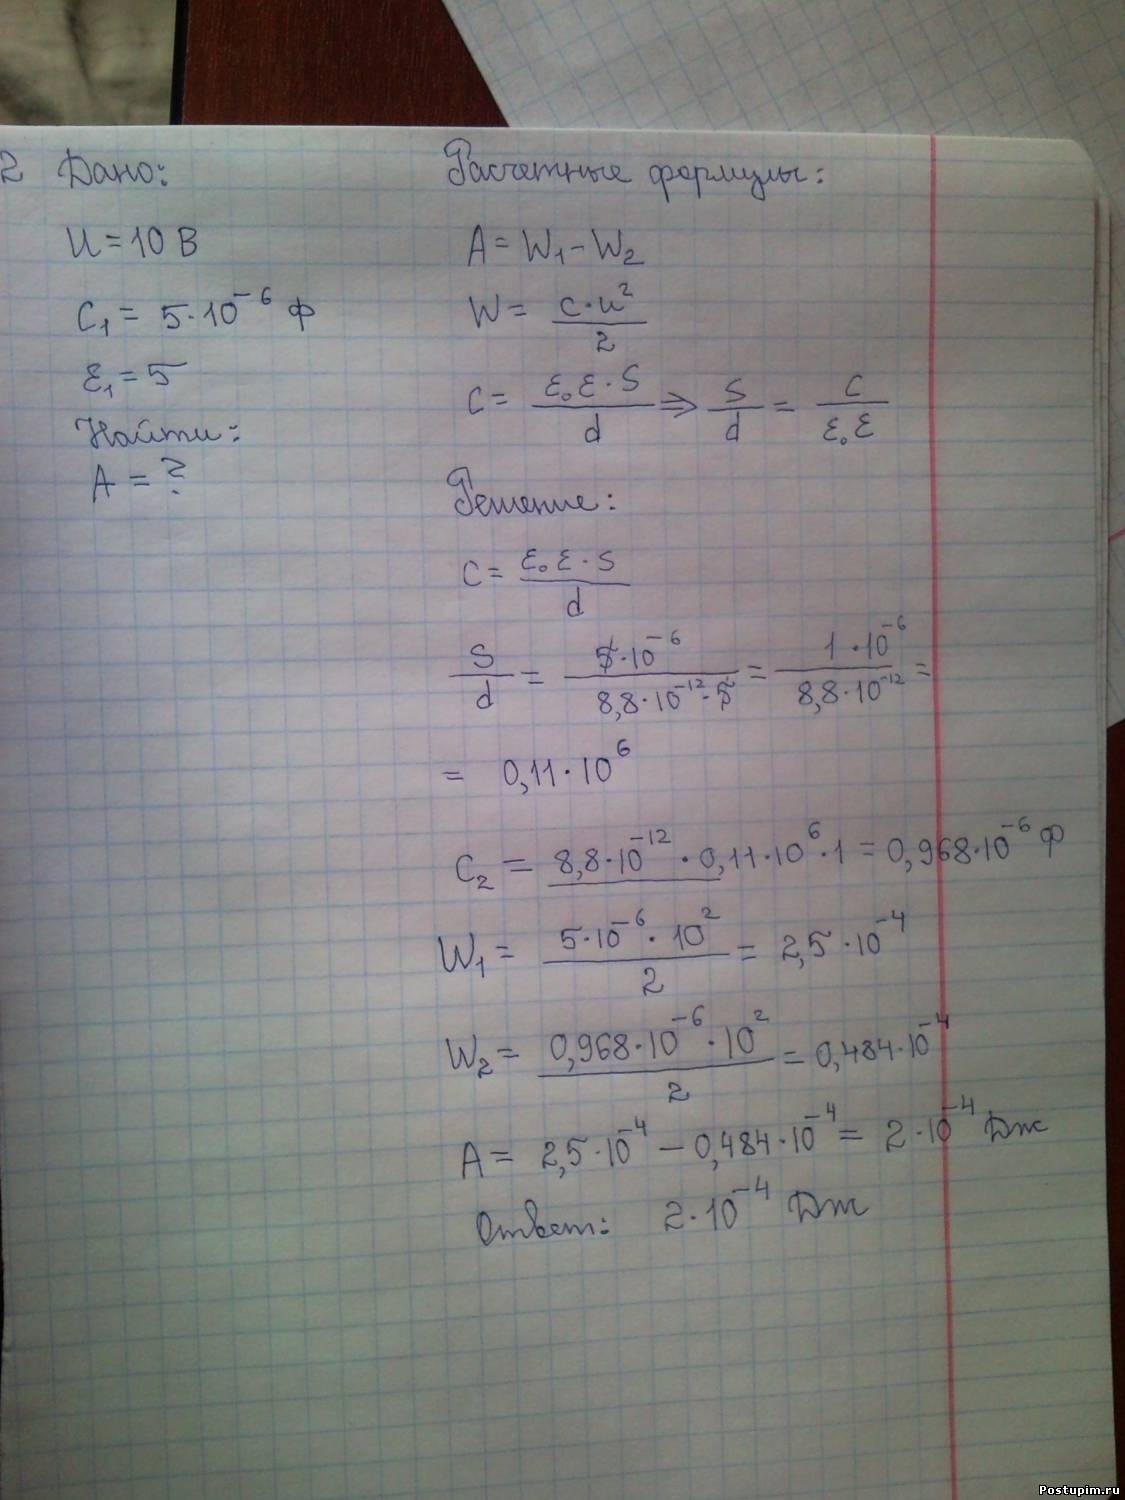 2 Дано:
U = 10 В
C₁ = 5·10⁻⁶ Ф
ε₁ = 5
Найти:
A = ?
Расчетные формулы:
A = W₁ - W₂
W = C·U² / 2
C = ε₀ε·S / d ⇒ S / d = C / ε₀ε
Решение:
C = ε₀ε·S / d
S / d = 5·10⁻⁶ / 8,8·10⁻¹²·5 = 1·10⁻⁶ / 8,8·10⁻¹² =
= 0,11·10⁶
C₂ = 8,8·10⁻¹²·0,11·10⁶·1 = 0,968·10⁻⁶ Ф
W₁ = 5·10⁻⁶·10² / 2 = 2,5·10⁻⁴
W₂ = 0,968·10⁻⁶·10² / 2 = 0,484·10⁻⁴
A = 2,5·10⁻⁴ - 0,484·10⁻⁴ = 2·10⁻⁴ Дж
Ответ: 2·10⁻⁴ Дж
Postupim.ru